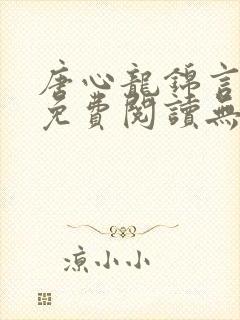 唐心龍錦言
免費閱讀無
涼小小